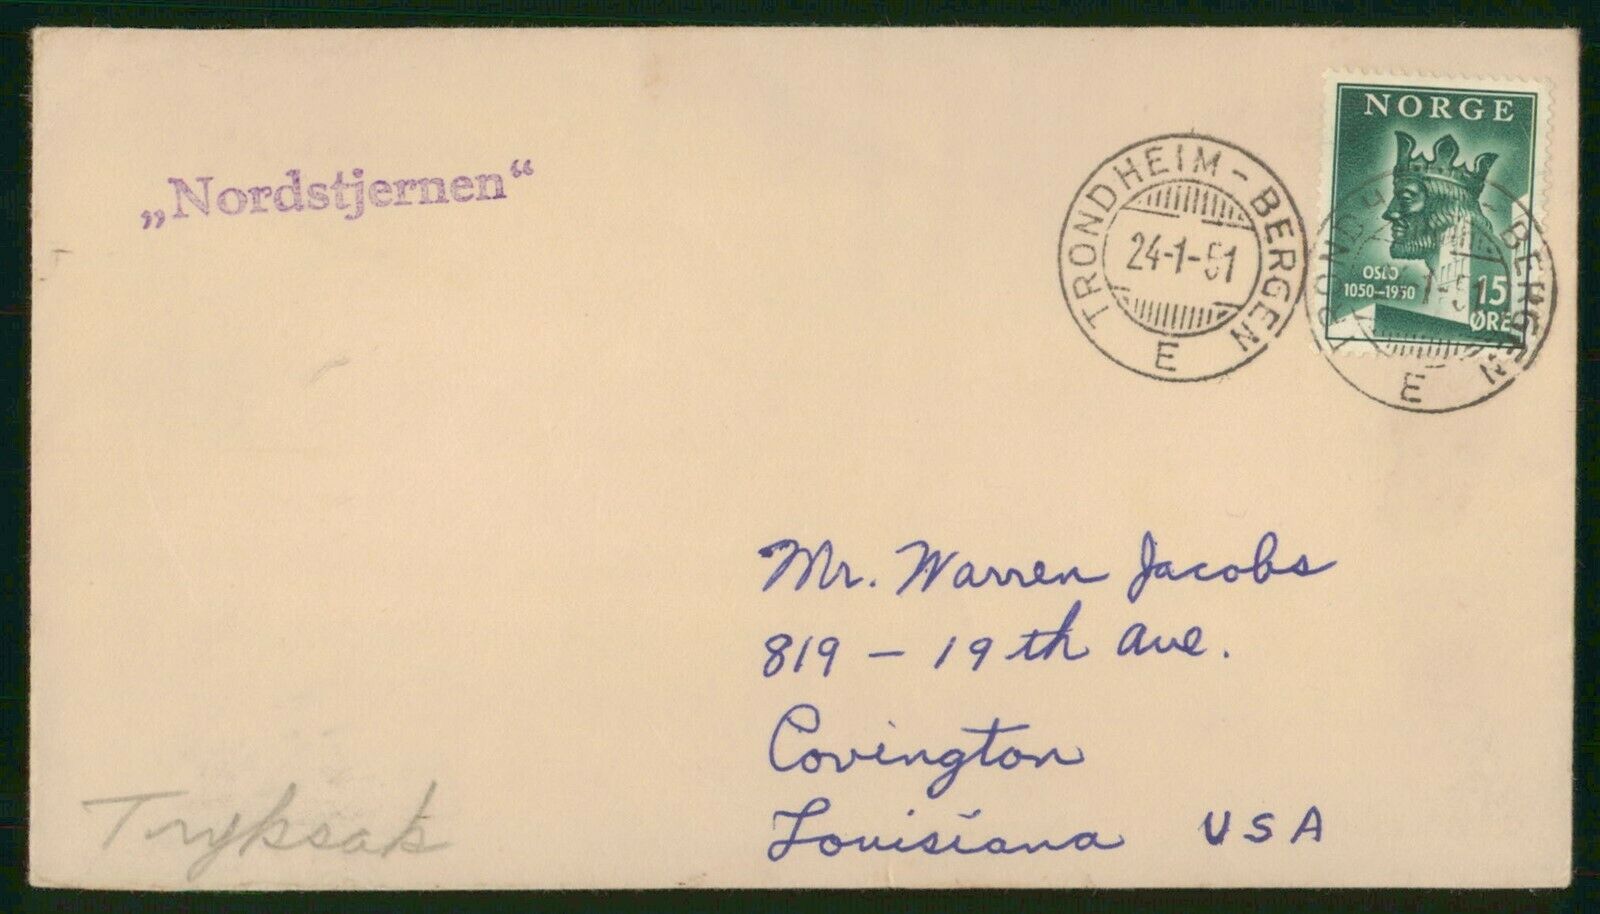 „Nordstjernen“
TRONDHEIM - BERGEN
24-1-51
E
NORGE
OSLO
1050-1950
15
ØRE
BERGEN
E
Mr. Warren Jacobs
819 - 19th Ave.
Covington
Louisiana USA
Tryksak